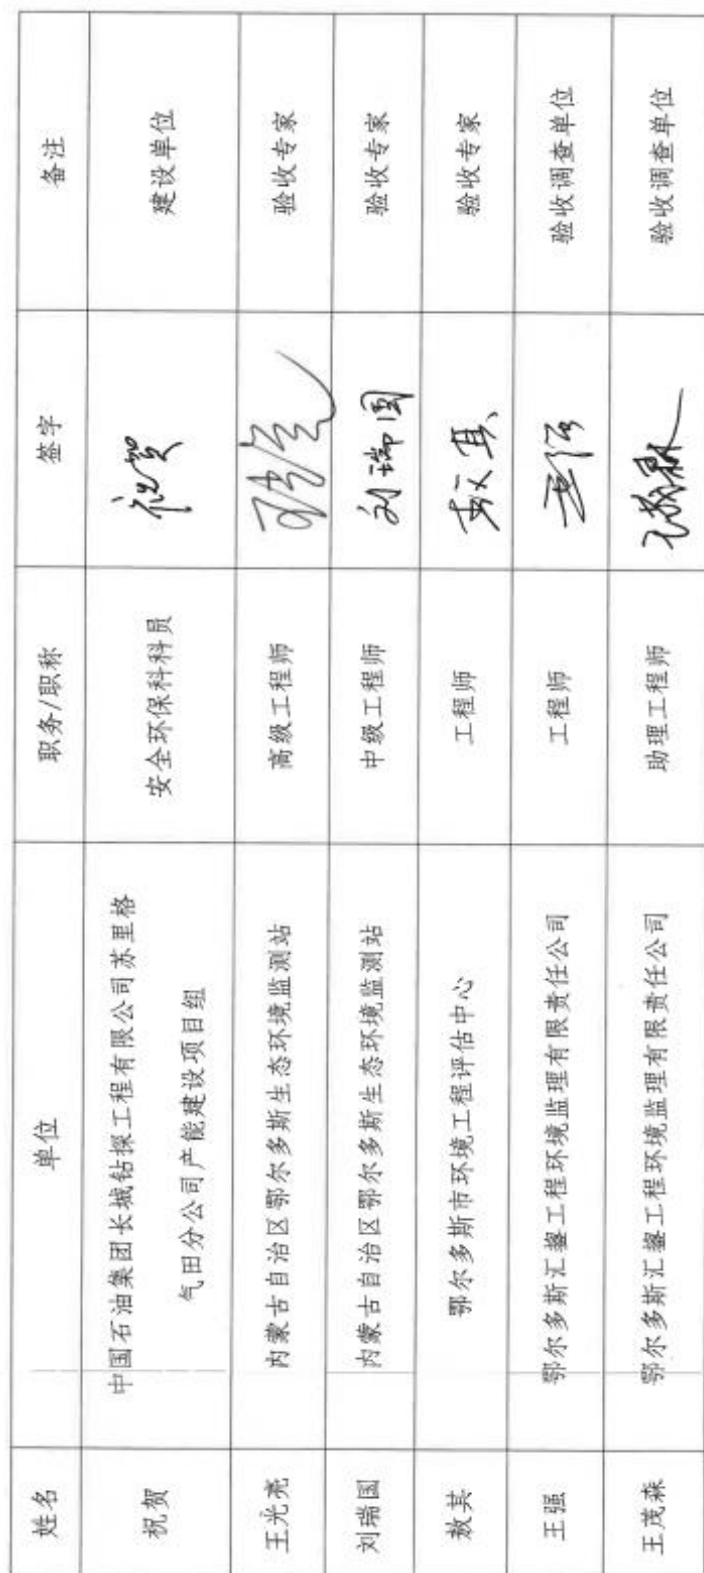 姓名 单位 职务/职称 签字 备注
祝贺 中国石油集团长城钻探工程有限公司苏里格 安全环保科科员 祝贺 建设单位
气田分公司产能建设项目组
王光亮 内蒙古自治区鄂尔多斯生态环境监测站 高级工程师 验收专家
刘瑞国 内蒙古自治区鄂尔多斯生态环境监测站 中级工程师 刘瑞国 验收专家
敖其 鄂尔多斯市环境工程评估中心 工程师 验收专家
王强 鄂尔多斯汇鋆工程环境监理有限责任公司 工程师 王强 验收调查单位
王茂森 鄂尔多斯汇鋆工程环境监理有限责任公司 助理工程师 验收调查单位